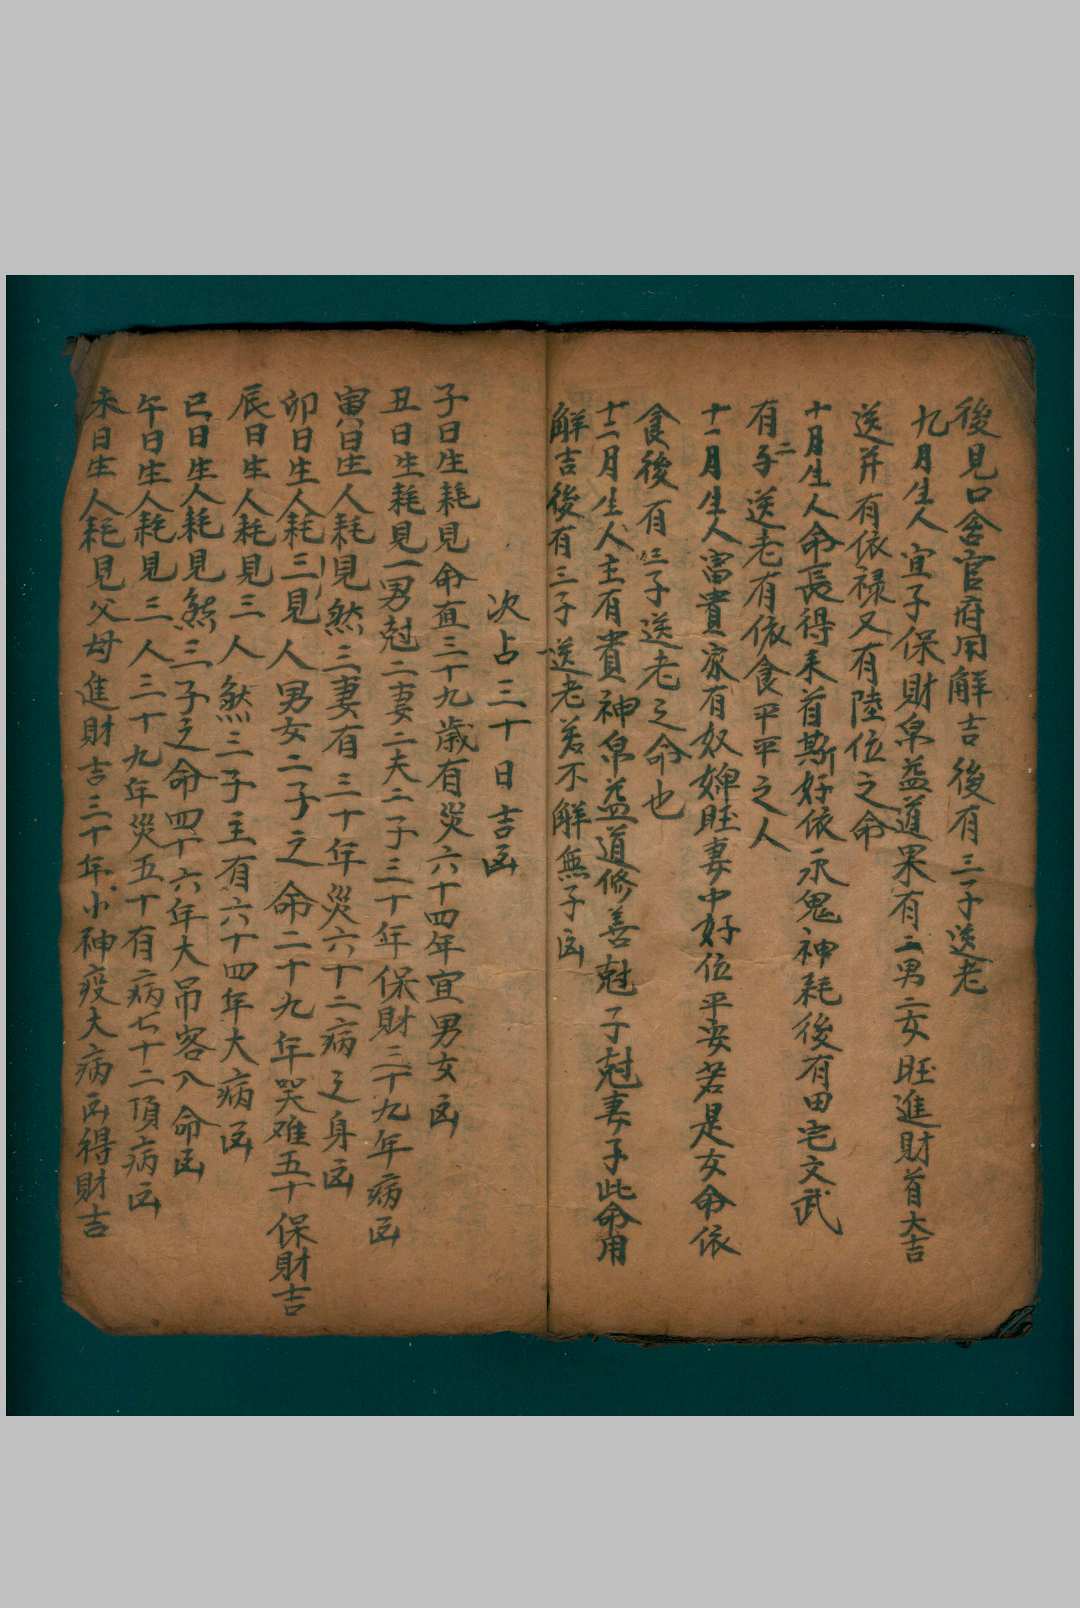 後見口舍官府用觧吉後有三子送老
九月生人宜子保財帛益道果有二男二女旺進財首大吉
送并有依禄又有陸位之命
十月生人命長得耒首斯好依承鬼神耗後有田宅文武
有二子送老有依食平平之人
十一月生人富貴家有奴婢旺妻中好位平安若是女命依
食後有三子送老之命也
十二月生人主有貴神帛益道修善尅子尅妻子此命用
觧吉後有三子送老若不觧無子凶
次占三十日吉凶
子日生耗見命直三十九歲有災六十四年宜男女凶
丑日生耗見一男尅二妻二夫二子三十年保財三十九年病凶
寅日生人耗見煞三妻有三十年災六十二病之身凶
卯日生人耗三見人男女二子之命二十九年哭难五十保財吉
辰日生人耗見三人煞三子主有六十四年大病凶
巳日生人耗見煞三子之命四十六年大吊客入命凶
午日生人耗見三人三十九年災五十有病七十二頂病凶
未日生人耗見父母進財吉三十年小神疫大病凶得財吉